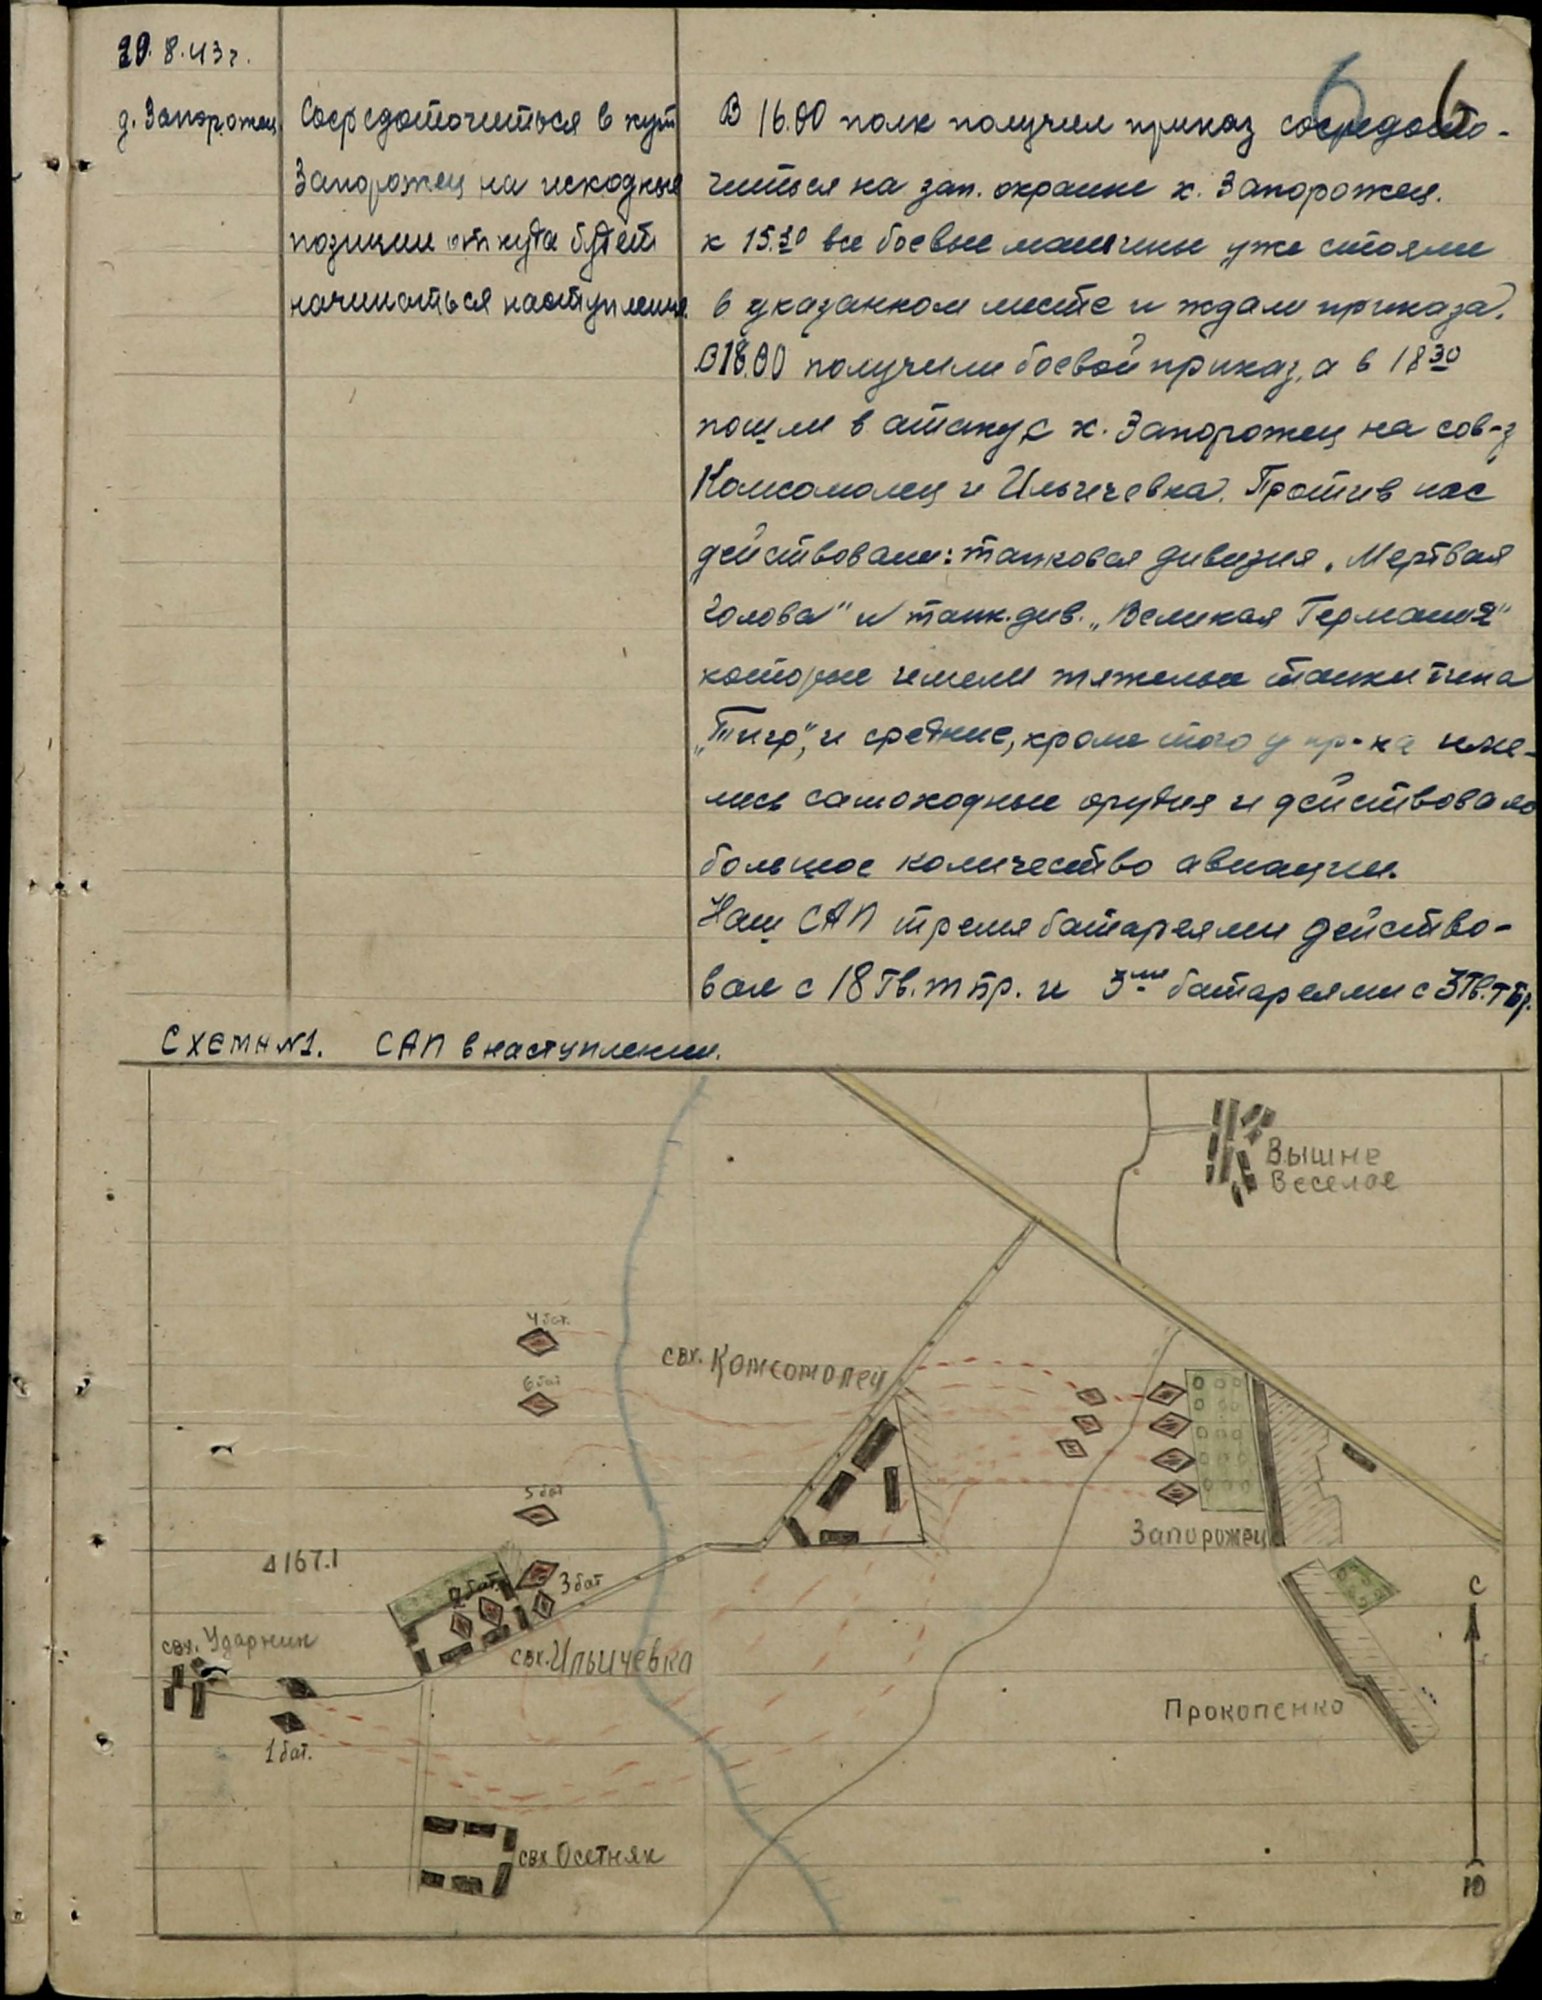 6 6
20.8.43г.
д. Запорожец
Сосредоточиться в хут
Запорожец на исходные
позиции откуда будет
начинаться наступление.
В 16.00 полк получил приказ сосредото-
читься на зап. окраине х. Запорожец.
к 15.30 все боевые машины уже стояли
в указанном месте и ждали приказа.
В 18.00 получили боевой приказ, а в 18 30
пошли в атаку с х. Запорожец на сов-з
Комсомолец и Ильичевка. Против нас
действовали: танковая дивизия „Мертвая
голова" и танк. див. „Великая Германия"
которые имели тяжелые танки типа
„Тигр", и средние, кроме того у пр-ка име-
лись самоходные орудия и действовало
большое количество авиации.
Наш САП тремя батареями действо-
вал с 18 Гв. тбр. и 3мя батареями с 3 Гв. тбр.
Схема №1. САП в наступлении.
Вышне
Веселое
4 бат.
свх. Комсомолец
6 бат
5 бат
Запорожец
167.1
2 бат.
3 бат
С
свх. Ударник
свх. Ильичевка
Прокопенко
1 бат.
свх Осетняк
Ю